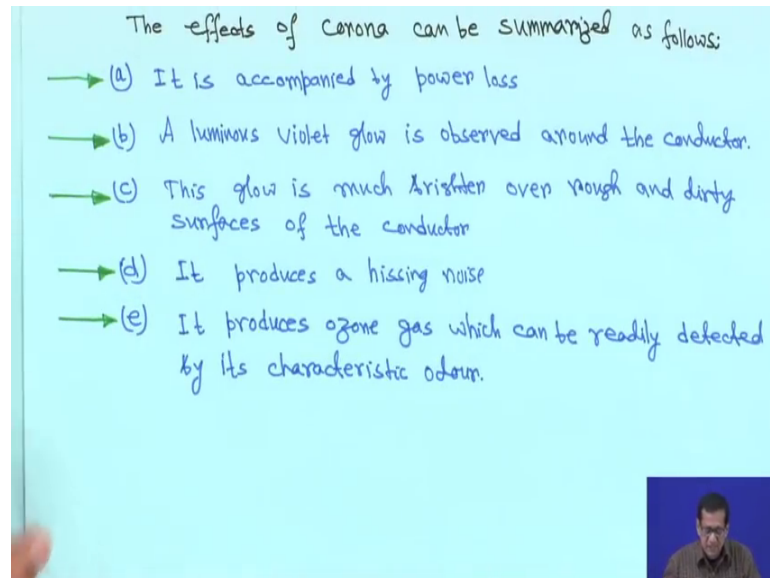 The effects of corona can be summarized as follows:
(a) It is accompanied by power loss
(b) A luminous violet glow is observed around the conductor.
(c) This glow is much brighter over rough and dirty
surfaces of the conductor
(d) It produces a hissing noise
(e) It produces ozone gas which can be readily detected
by its characteristic odour.